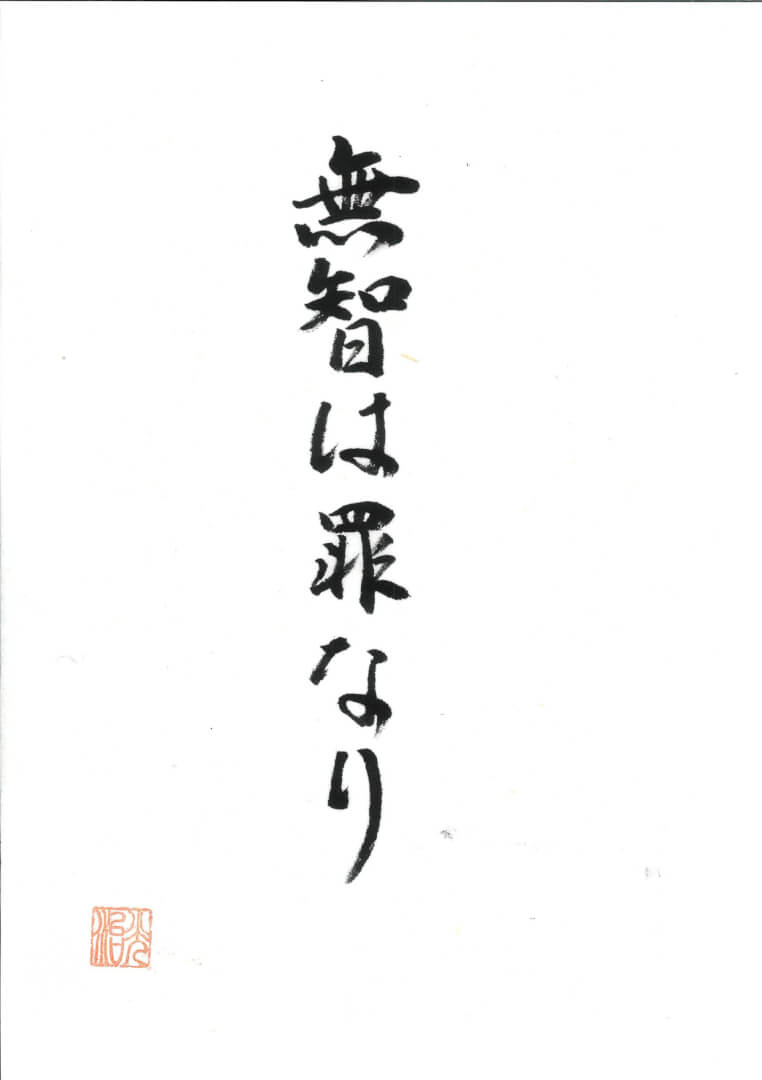 無智は罪なり